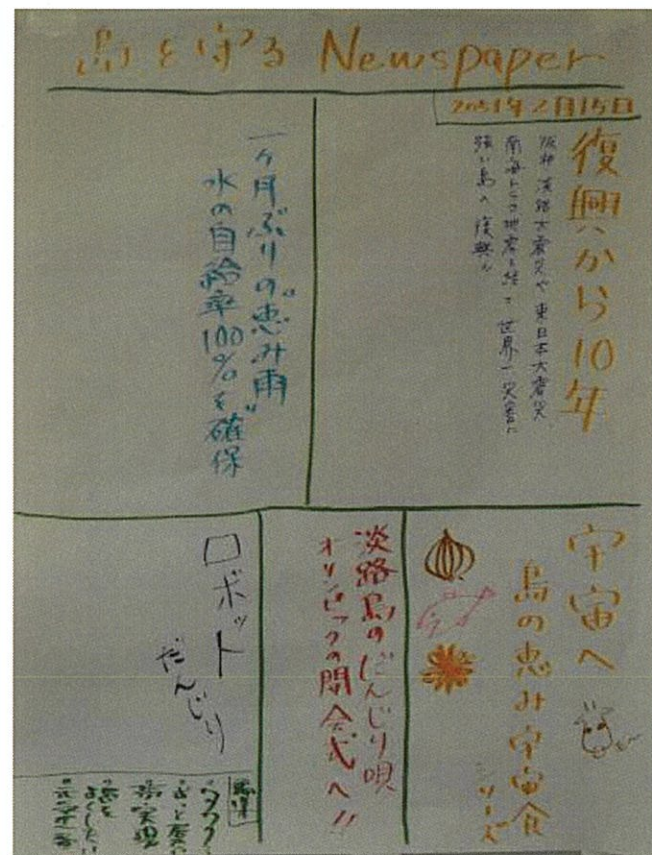 島を守る Newspaper
2051年2月15日
復興から10年
阪神・淡路大震災や東日本大震災、
南海トラフ地震を経て世界一災害に
強い島へ復興
一ヶ月ぶりの"恵み雨"
水の自給率100%を確保
宇宙へ
島の恵み宇宙食
シリーズ
淡路島のだんじり唄
オリンピックの開会式へ!!
ロボット
だんじり